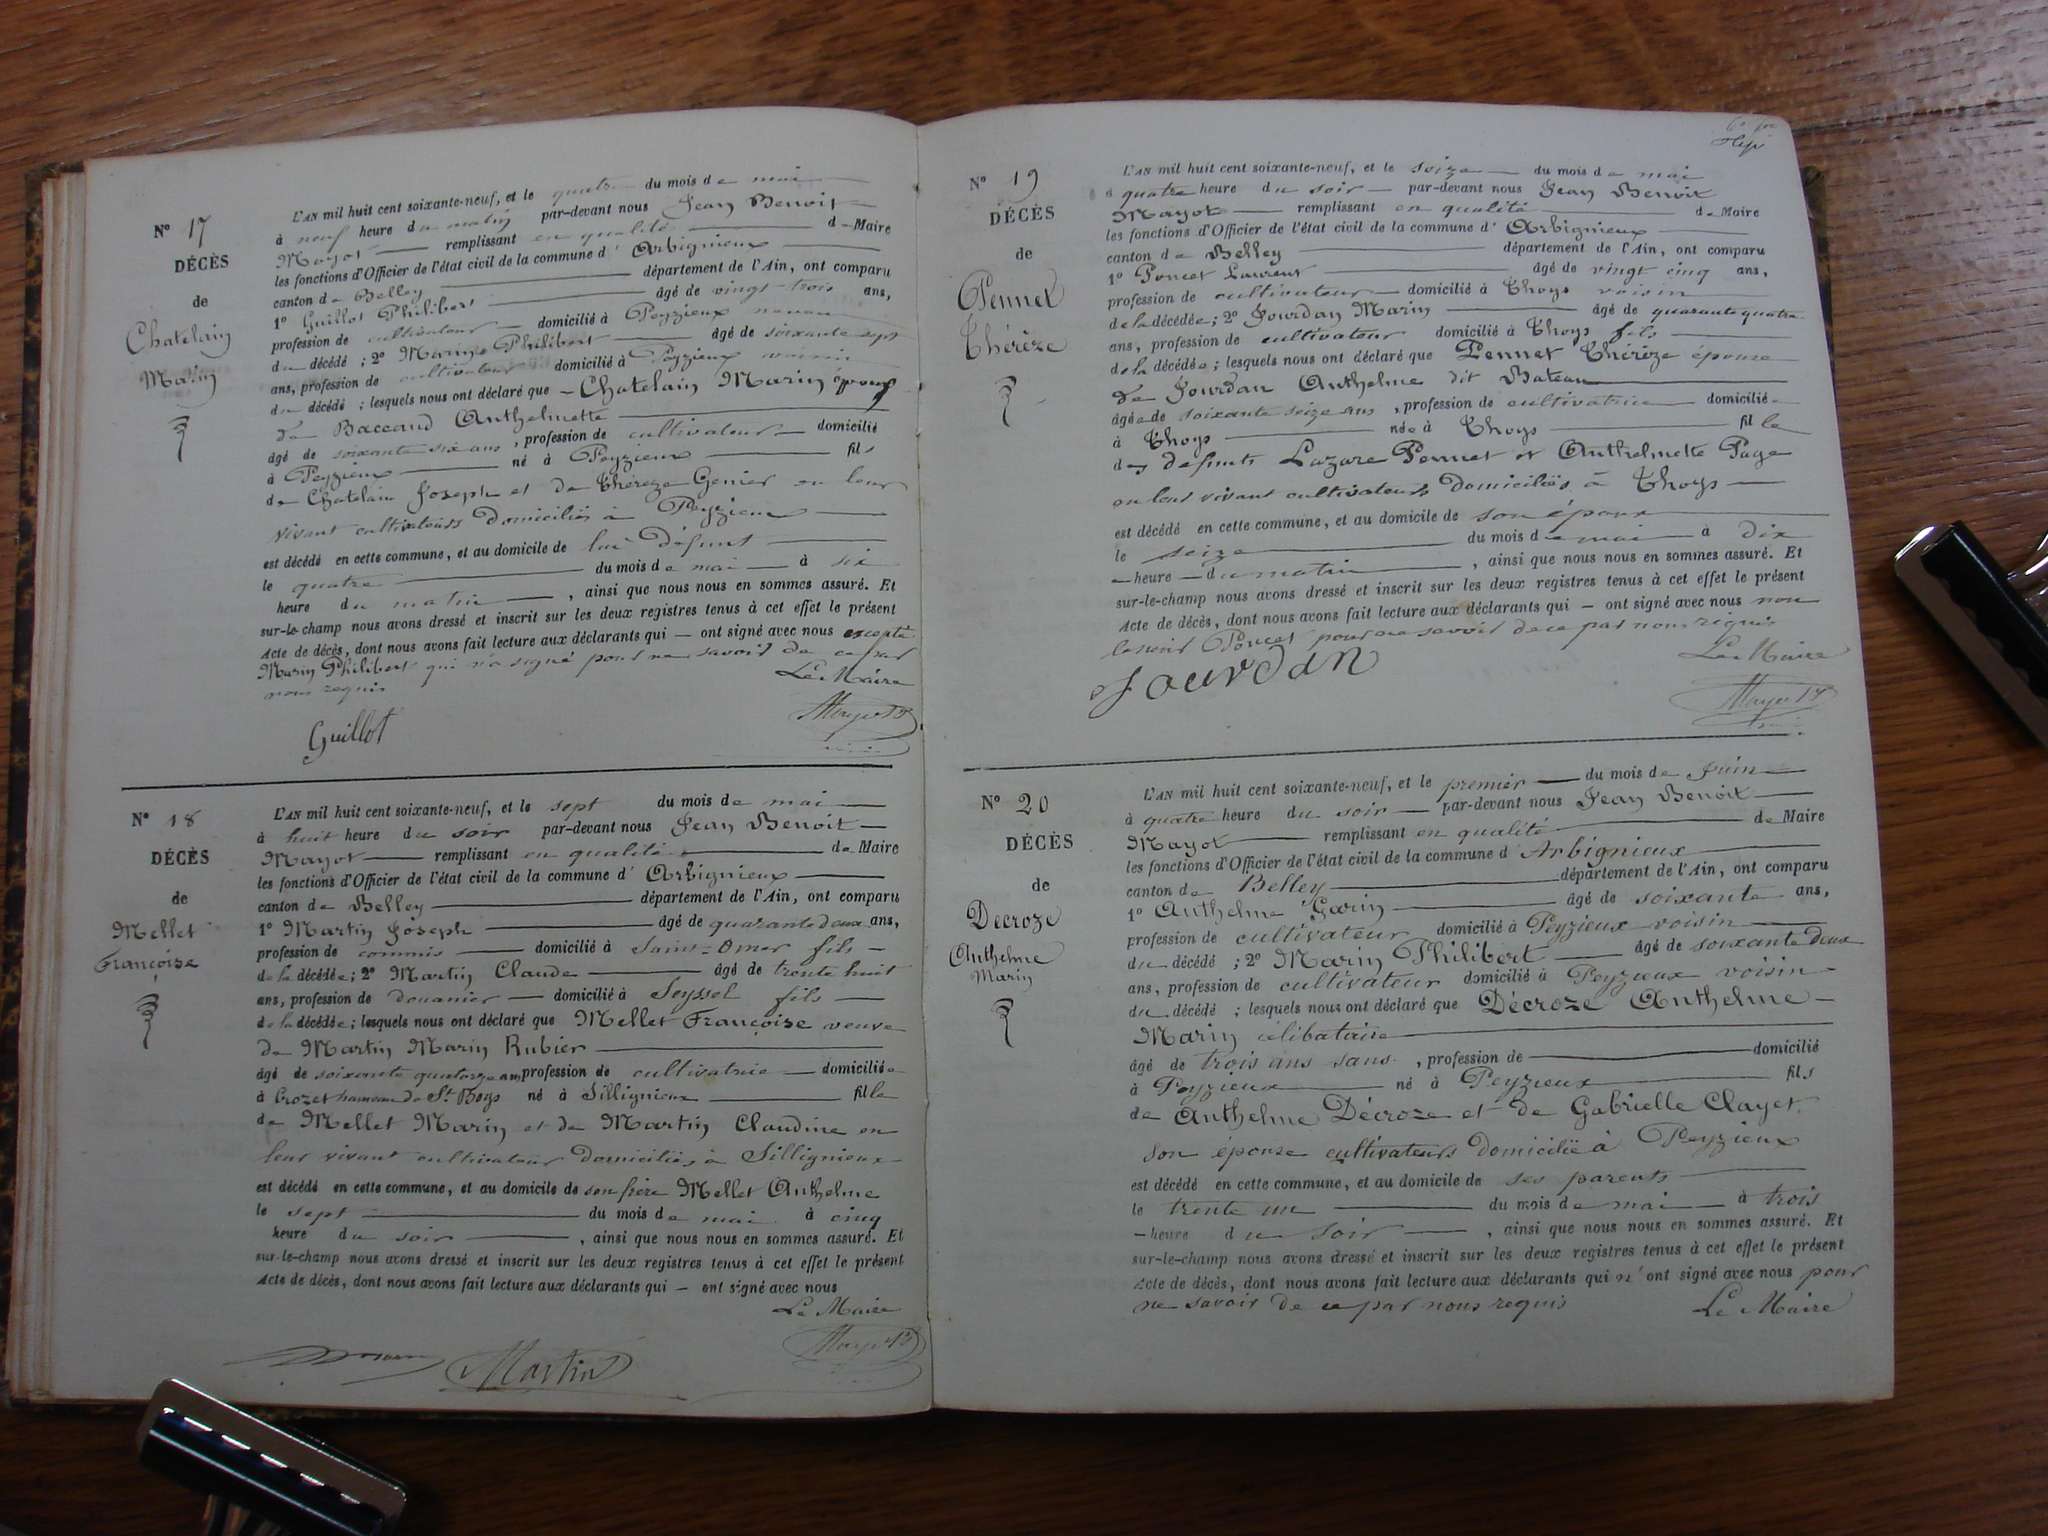 N° 17
DÉCÈS
de
Chatelain
Marin
L'AN mil huit cent soixante-neuf, et le quatre du mois de mai
à neuf heure du matin par-devant nous Jean Benoit
Mayot remplissant en qualité de Maire
les fonctions d'Officier de l'état civil de la commune d' Arbignieux
canton de Belley département de l'Ain, ont comparu
1° Guillot Philibert âgé de vingt-trois ans,
profession de cultivateur domicilié à Peyzieux neveu
du décédé ; 2° Marin Philibert âgé de soixante sept
ans, profession de cultivateur domicilié à Peyzieux voisin
du décédé ; lesquels nous ont déclaré que Chatelain Marin époux
de Baccaud Anthelmette
âgé de soixante six ans , profession de cultivateur domicilié
à Peyzieux né à Peyzieux fils
de Chatelain Joseph et de Thérèze Genier en leur
vivant cultivateurs domiciliés à Peyzieux
est décédé en cette commune, et au domicile de lui défunt
le quatre du mois de mai à six
heure du matin , ainsi que nous nous en sommes assuré. Et
sur-le-champ nous avons dressé et inscrit sur les deux registres tenus à cet effet le présent
Acte de décès, dont nous avons fait lecture aux déclarants qui – ont signé avec nous excepté
Marin Philibert qui n'a signé pour ne savoir de ce par
nous requis
Le Maire
Guillot
Mayot
N° 18
DÉCÈS
de
Mellet
Françoise
L'AN mil huit cent soixante-neuf, et le sept du mois de mai
à huit heure du soir par-devant nous Jean Benoit
Mayot remplissant en qualité de Maire
les fonctions d'Officier de l'état civil de la commune d' Arbignieux
canton de Belley département de l'Ain, ont comparu
1° Martin Joseph âgé de quarante deux ans,
profession de commis domicilié à Saint-Omer fils
de la décédée ; 2° Martin Claude âgé de trente huit
ans, profession de douanier domicilié à Seyssel fils
de la décédée ; lesquels nous ont déclaré que Mellet Françoise veuve
de Martin Marin Rubier
âgé de soixante quatorze ans profession de cultivatrice domiciliée
à Crozet hameau de St Boys né à Sillignieux fille
de Mellet Marin et de Martin Claudine en
leur vivant cultivateur domiciliés à Sillignieux
est décédé en cette commune, et au domicile de son frère Mellet Anthelme
le sept du mois de mai à cinq
heure du soir , ainsi que nous nous en sommes assuré. Et
sur-le-champ nous avons dressé et inscrit sur les deux registres tenus à cet effet le présent
Acte de décès, dont nous avons fait lecture aux déclarants qui – ont signé avec nous
Le Maire
Martin
Mayot
N° 19
DÉCÈS
de
Pennet
Thérèze
L'AN mil huit cent soixante-neuf, et le seize du mois de mai
à quatre heure du soir par-devant nous Jean Benoit
Mayot remplissant en qualité de Maire
les fonctions d'Officier de l'état civil de la commune d' Arbignieux
canton de Belley département de l'Ain, ont comparu
1° Poncet Laurent âgé de vingt cinq ans,
profession de cultivateur domicilié à Thoys voisin
de la décédée ; 2° Jourdan Marin âgé de quarante quatre
ans, profession de cultivateur domicilié à Thoys fils
de la décédée ; lesquels nous ont déclaré que Pennet Thérèze épouse
de Jourdan Anthelme dit Bateau
âgée de soixante seize ans , profession de cultivatrice domiciliée
à Thoys née à Thoys fille
des défunts Lazare Pennet et Anthelmette Page
en leur vivant cultivateurs domiciliés à Thoys
est décédé en cette commune, et au domicile de son époux
le seize du mois de mai à dix
heure du matin , ainsi que nous nous en sommes assuré. Et
sur-le-champ nous avons dressé et inscrit sur les deux registres tenus à cet effet le présent
Acte de décès, dont nous avons fait lecture aux déclarants qui – ont signé avec nous non
Poncet pour ne savoir de ce par nous requis
Le Maire
Jourdan
Mayot
N° 20
DÉCÈS
de
Decroze
Anthelme
Marin
L'AN mil huit cent soixante-neuf, et le premier du mois de Juin
à quatre heure du soir par-devant nous Jean Benoit
Mayot remplissant en qualité de Maire
les fonctions d'Officier de l'état civil de la commune d' Arbignieux
canton de Belley département de l'Ain, ont comparu
1° Anthelme Garin âgé de soixante ans,
profession de cultivateur domicilié à Peyzieux voisin
du décédé ; 2° Marin Philibert âgé de soixante deux
ans, profession de cultivateur domicilié à Peyzieux voisin
du décédé ; lesquels nous ont déclaré que Décroze Anthelme
Marin célibataire
âgé de trois ans sans , profession de domicilié
à Peyzieux né à Peyzieux fils
de Anthelme Décroze et de Gabrielle Clayet
son épouse cultivateurs domicilié à Peyzieux
est décédé en cette commune, et au domicile de ses parents
le trente un du mois de mai à trois
heure du soir , ainsi que nous nous en sommes assuré. Et
sur-le-champ nous avons dressé et inscrit sur les deux registres tenus à cet effet le présent
Acte de décès, dont nous avons fait lecture aux déclarants qui n'ont signé avec nous pour
ne savoir de ce par nous requis
Le Maire